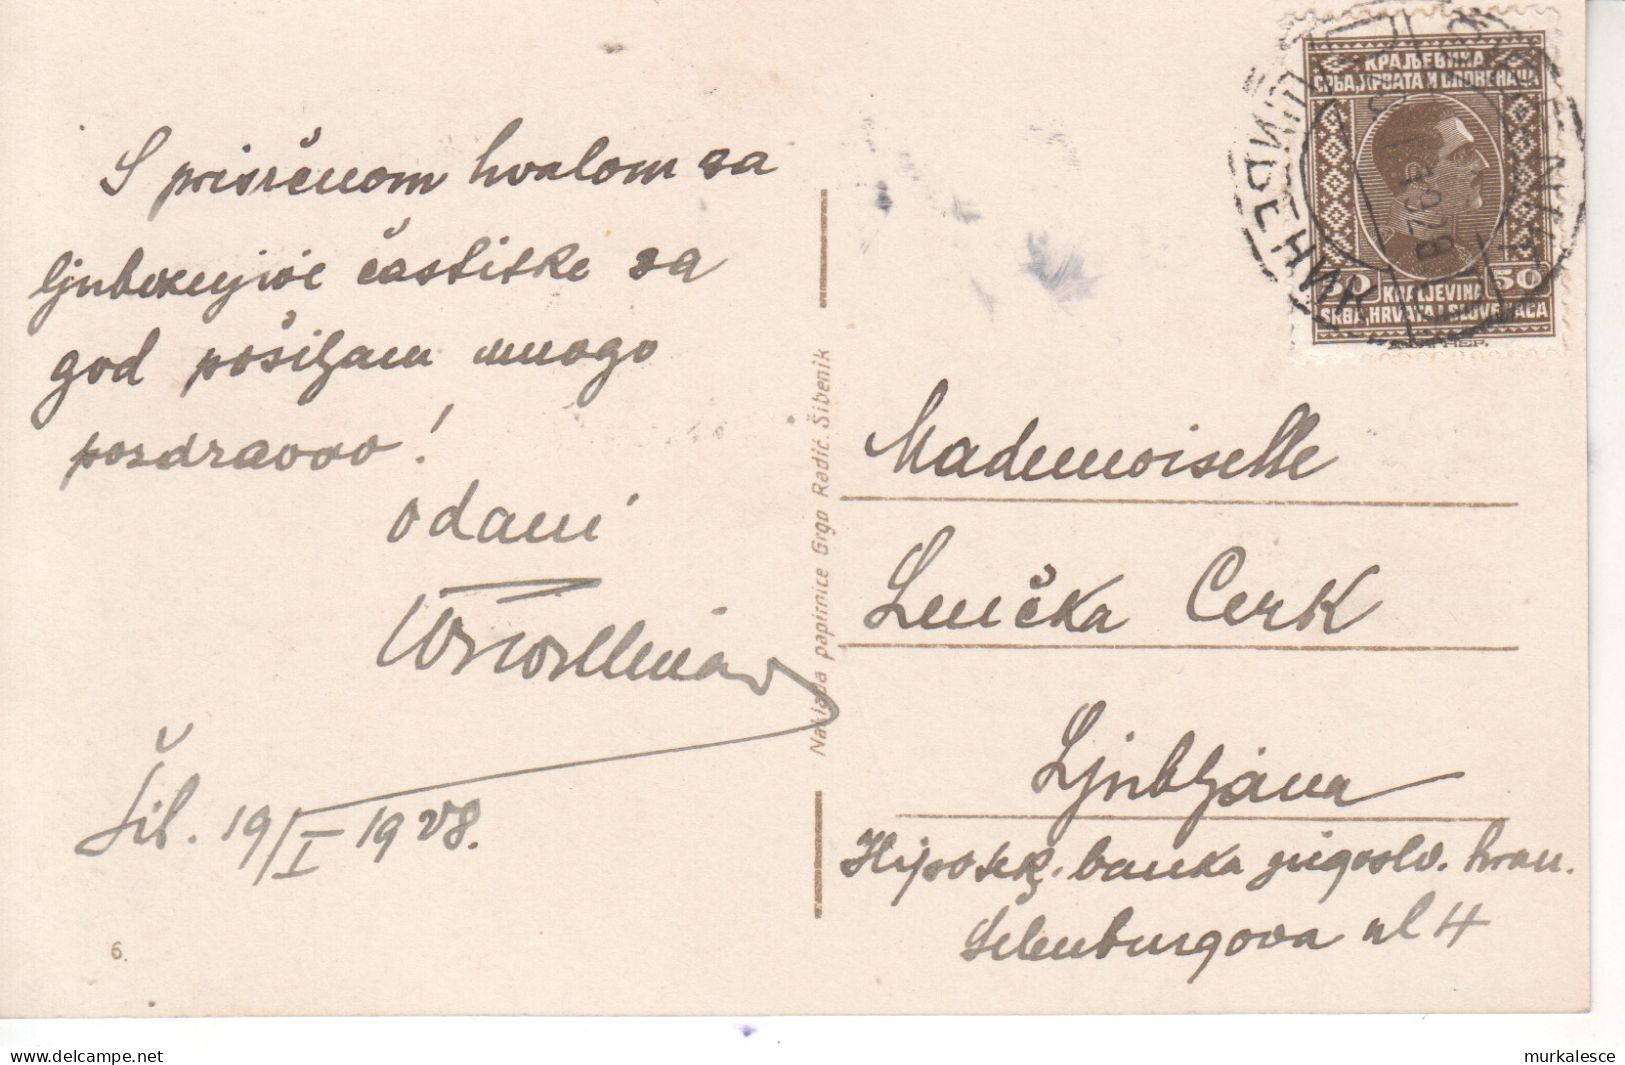 S prisrčnom hvalom za
ljubeznjive častitke za
god pošiljam mnogo
pozdravov!
odani
Šib. 19/I 1928.
6.
Naklada papirnice Grgo Radić. Šibenik
КРАЉЕВИНА
СРБА, ХРВАТА И СЛОВЕНАЦА
50 50
KRALJEVINA
SRBA, HRVATA I SLOVENACA
ШИБЕНИК
Mademoiselle
Lenčka Cerk
Ljubljana
Hipotek. banka jugoslv. hran.
Šelenburgova ul 4
delcampe.net
murkalesce